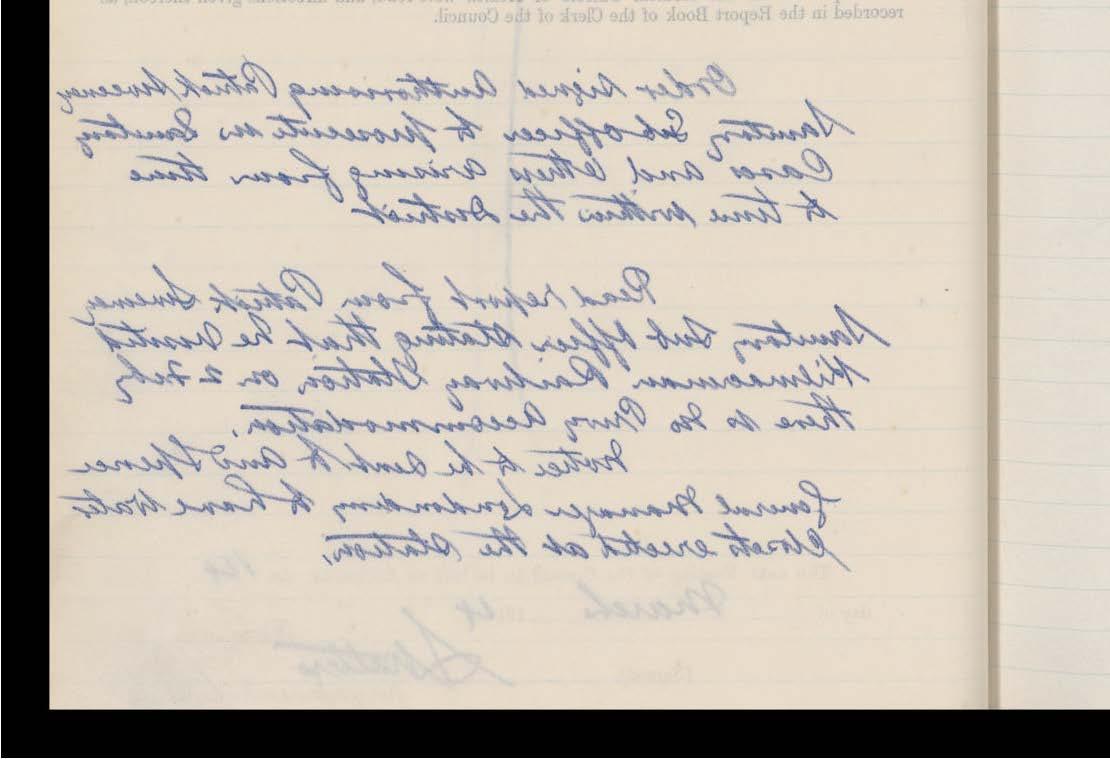 recorded in the Report Book of the Clerk of the Council.
Order signed authorising Patrick Sweeney
Sanitary Sub officer to prosecute in Sanitary
Cases and others arising from time
to time within the District
Read report from Patrick Sweeney
Sanitary Sub Officer stating that he visited
Kilmacrenan Railway Station on 2 Feby
there is no Privy accommodation.
Notice to be sent to
General Manager Londonderry to have Water
Closets erected at the Station,
March 14